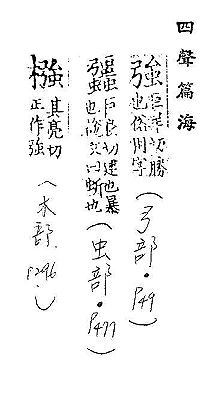 四聲篇海
強巨羊切勝
也俗用字
(弓部·P49)
強巨良切健也暴
也
蚚也
(虫部·P477)
其亮切
正作強
(木部·P296·)